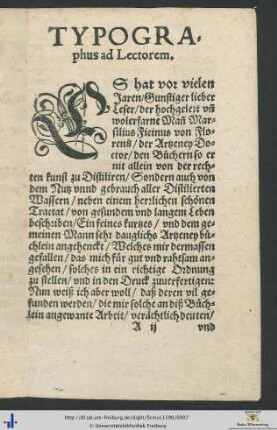 TYPOGRA-
phus ad Lectorem.
ES hat vor vielen
Jaren/Gunstiger lieber
Leser/der hochgelert vñ
wolerfarne Mañ Mar-
silius Ficinus von Flo-
rentz/der Artzeney Do-
ctor/den Büchern so er
nit allein von der rech-
ten kunst zu Distiliren/Sondern auch von
dem Nutz vnnd gebrauch aller Distilierten
Wassern/neben einem herrlichen schönen
Tractat/von gesundem vnd langem Leben
beschriben/Ein feines kurtzes/vnd dem ge-
meinen Mann sehr dauglichs Artzeney bü-
chlein angehenckt/Welches mir dermassen
gefallen/das mich für gut vnd rahtsam an-
gesehen/solches in ein richtige Ordnung
zu stellen/vnd in den Druck zuuerfertigen:
Nun weiß ich aber woll/daß deren vil ge-
funden werden/die mir solche an diß Büch-
lein angewante Arbeit/verächtlich deuten/
A ij vnd
http://dl.ub.uni-freiburg.de/diglit/ficinus1590/0007
© Universitätsbibliothek Freiburg